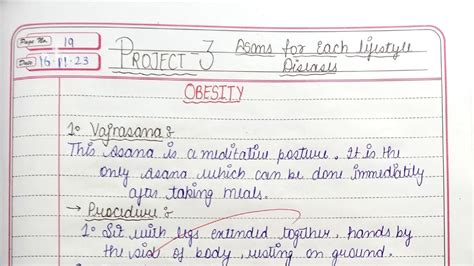 Page No. 19
Date 16.11.23
PROJECT-3 Asans for Each lifestyle
Diseases
OBESITY
1. Vajrasana :
This asana is a meditative posture. It is the
only asana which can be done immediately
after taking meals.
→ Procedure :
1. Sit with legs extended together, hands by
the side of body, resting on ground.